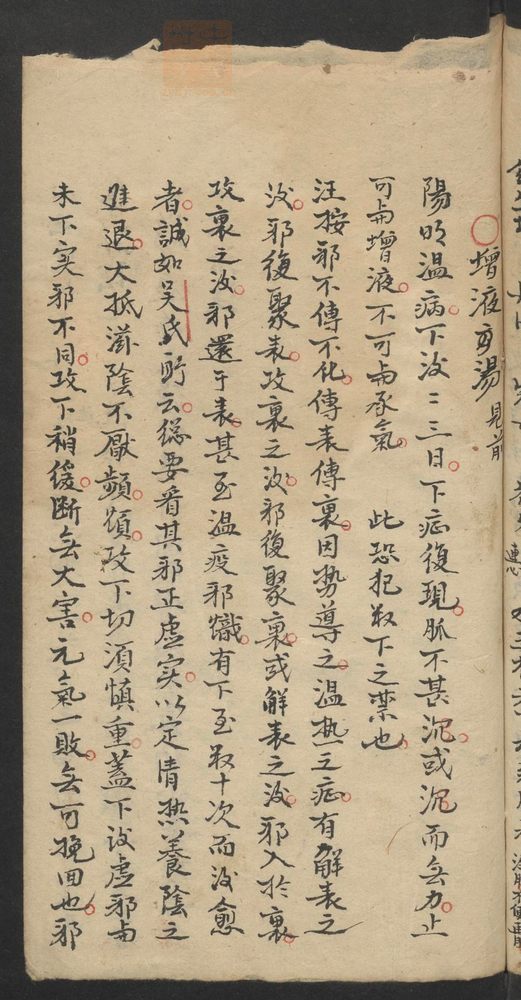 增液湯 見前
陽明温病下後二三日下症復現脈不甚沉或沉而無力止
可與增液不可與承氣 此恐犯數下之禁也
汪按邪不傳不化傳表傳裏因勢導之温热之症有解表之
後邪復聚表攻裏之後邪復聚裏或解表之後邪入於裏
攻裏之後邪還于表甚至温疫邪熾有下至數十次而後愈
者誠如吴氏所云總要看其邪正虛实以定清热養陰之
進退大抵滋陰不厭頻頻攻下切須慎重蓋下後虛邪與
未下实邪不同攻下稍緩断無大害元氣一敗無可挽回也邪